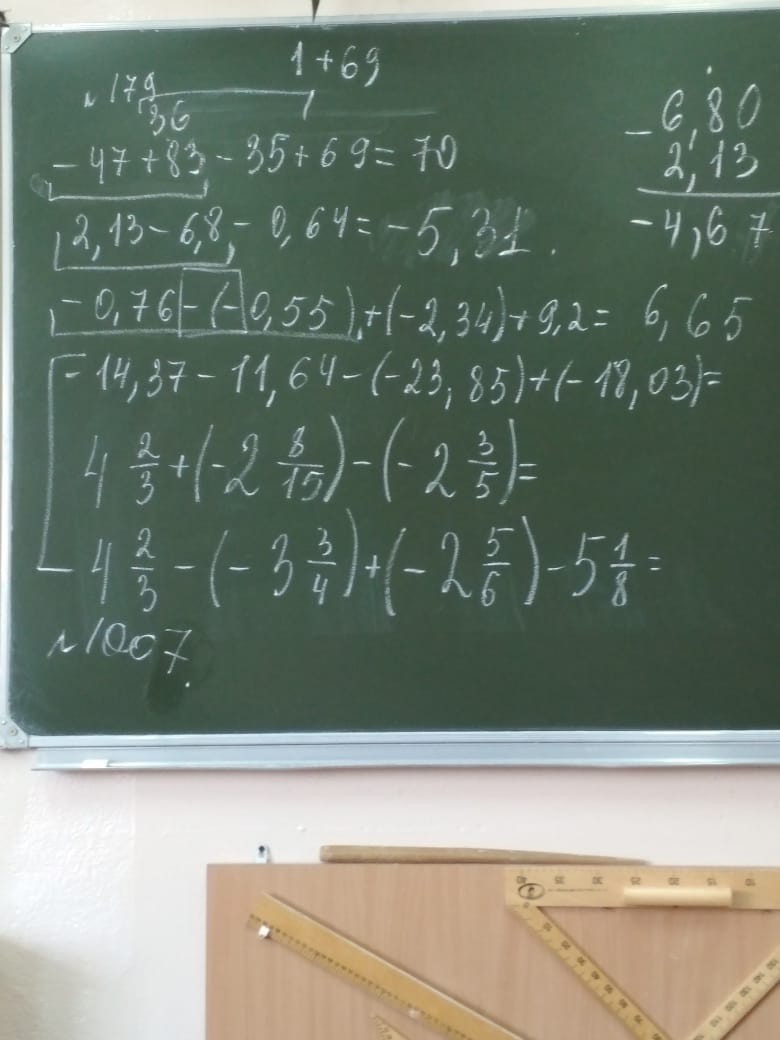 1+69
№179
36
-47+83-35+69=70
2,13-6,8-0,64=-5,31.
-0,76-(-0,55)+(-2,34)+9,2= 6,65
-14,37-11,64-(-23,85)+(-18,03)=
4 2/3+(-2 8/15)-(-2 3/5)=
4 2/3-(-3 3/4)+(-2 5/6)-5 1/8=
№1007.
-6,80
2,13
-4,67